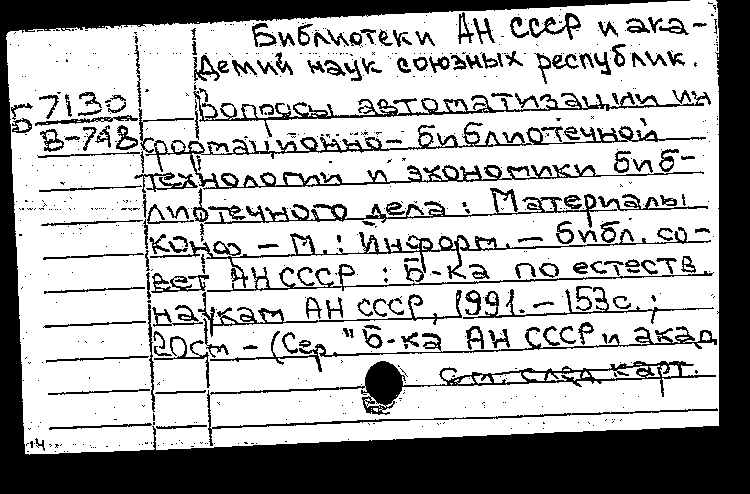 Библиотеки АН СССР и ака-
демий наук союзных республик.
Б 7130
В-748
Вопросы автоматизации ин
формационно-библиотечной
технологии и экономики биб-
лиотечного дела : Материалы
конф. - М.: Информ. - библ. со-
вет АН СССР : Б-ка по естеств.
наукам АН СССР, 1991. - 153 с. ;
20см. - (Сер. "Б-ка АН СССР и акад
См. след. карт.
14